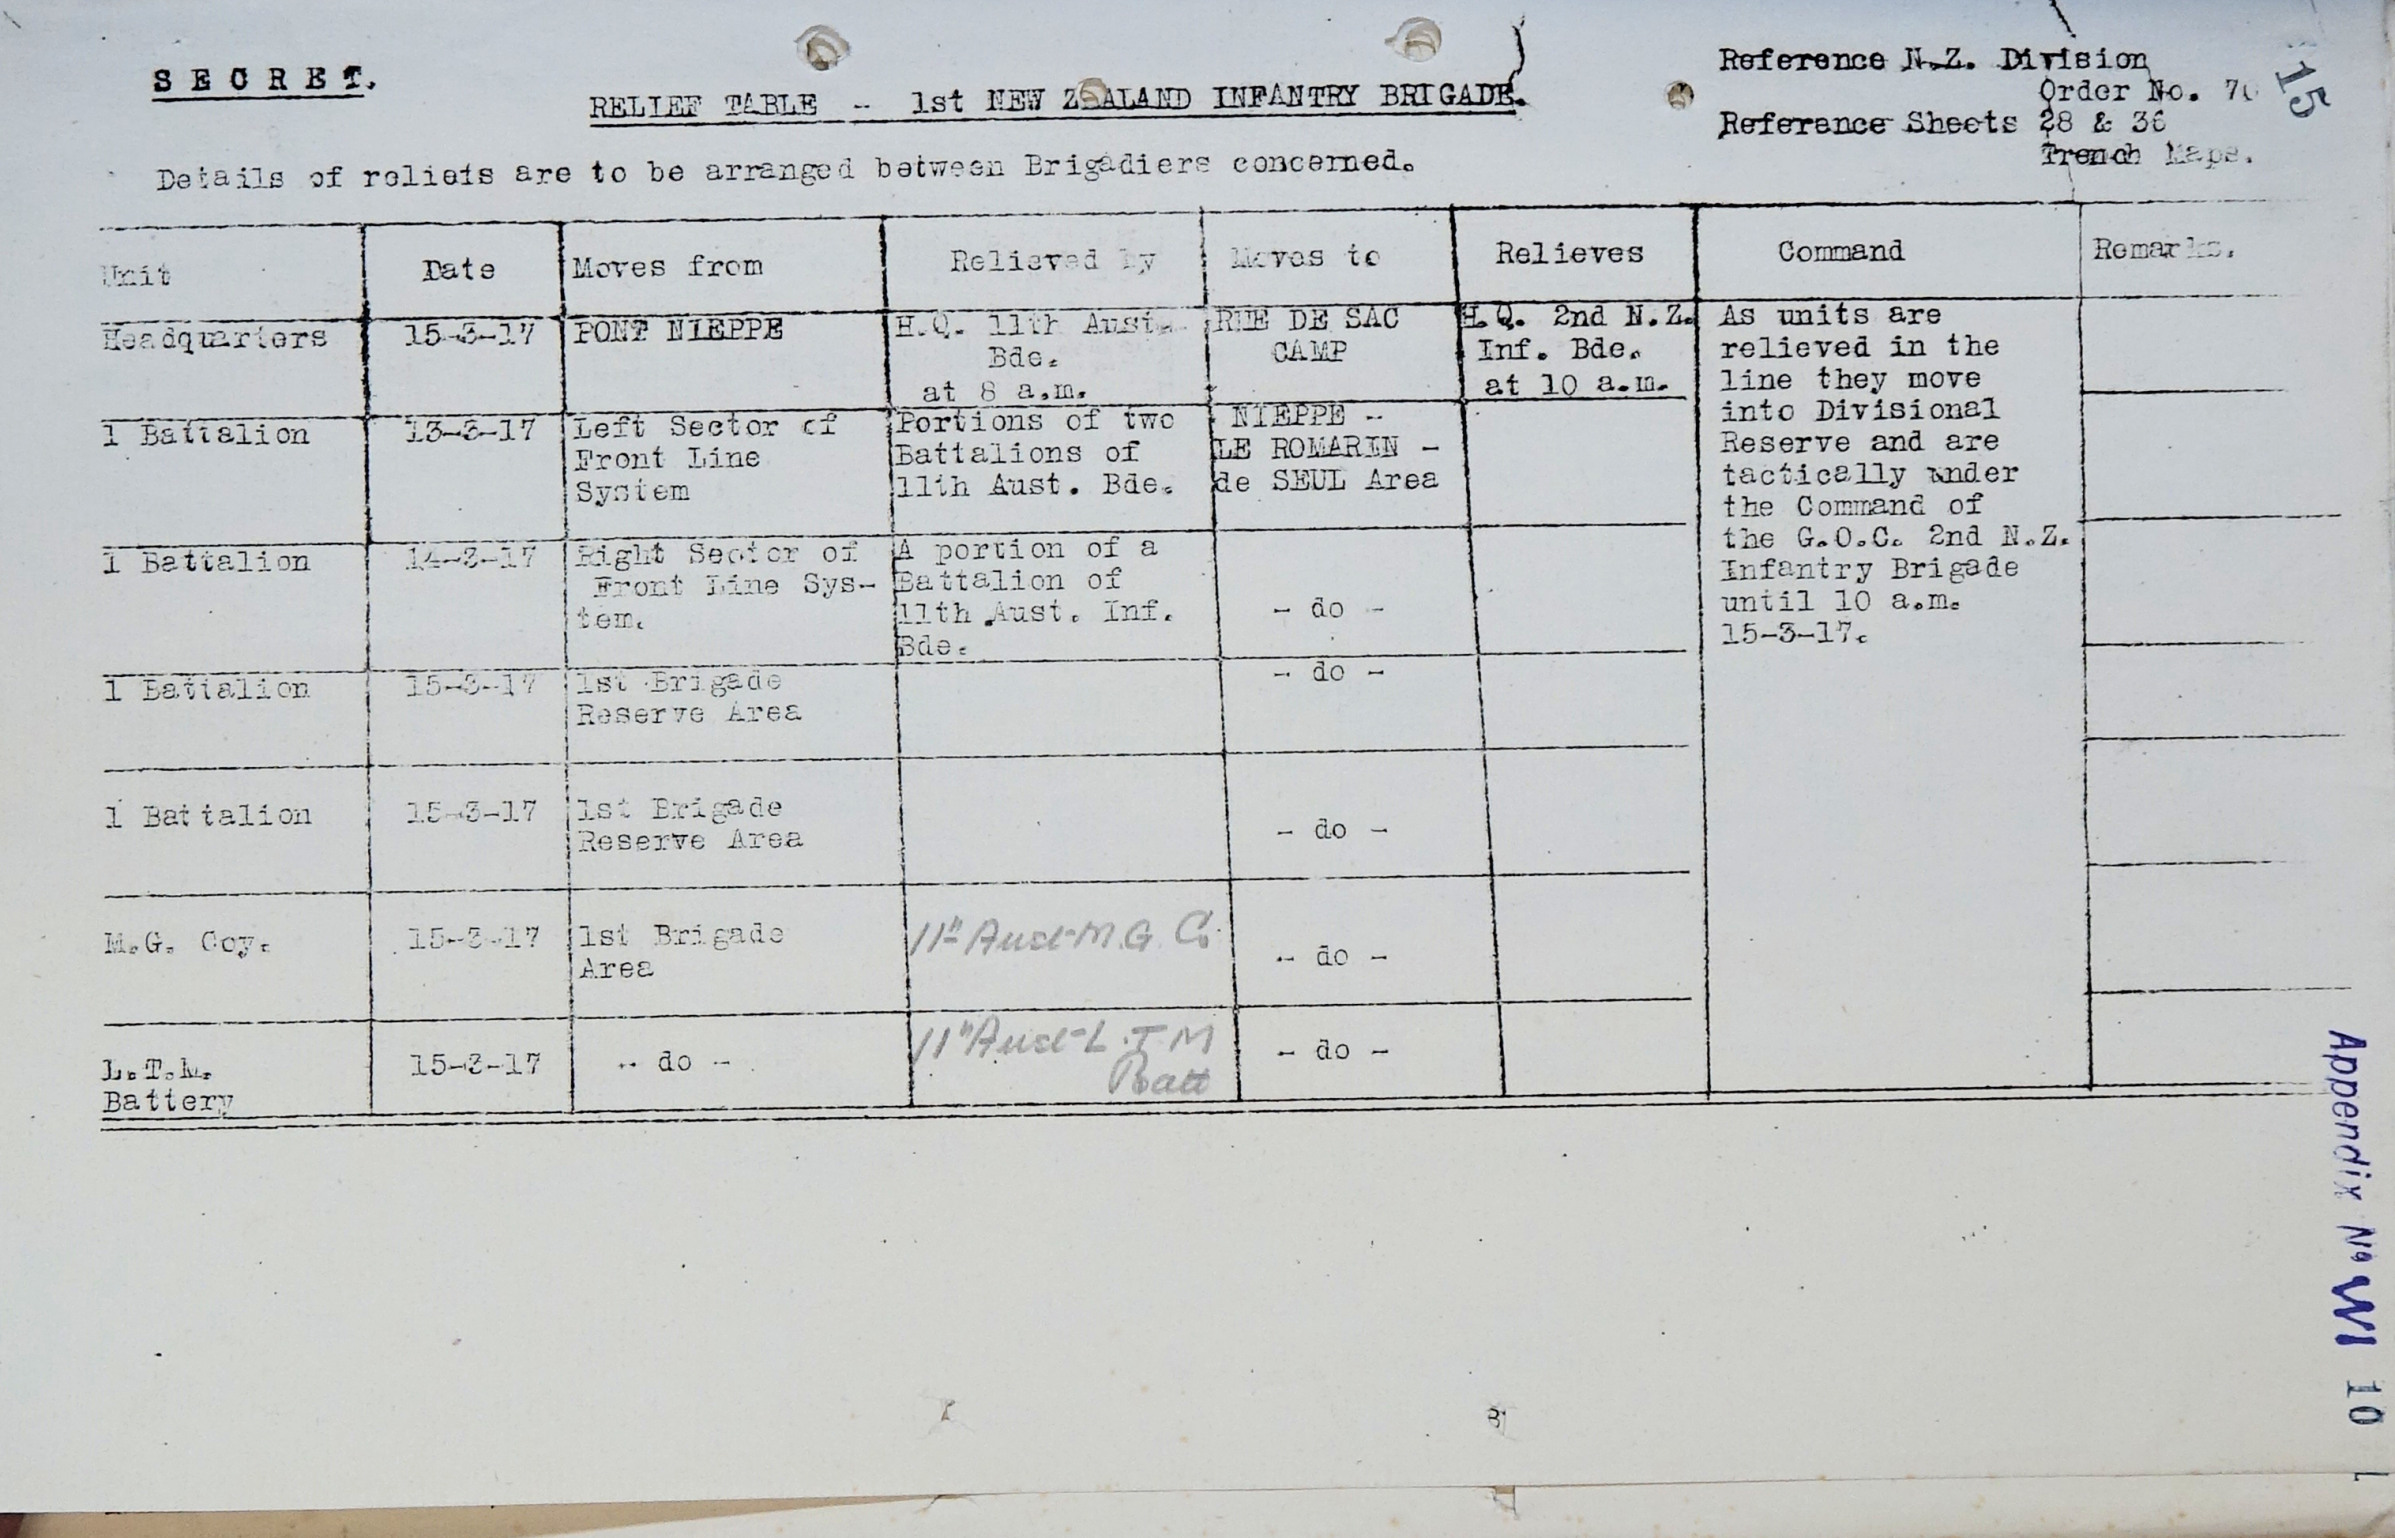 SECRET.
RELIEF TABLE - 1st NEW ZEALAND INFANTRY BRIGADE.
Reference N.Z. Division
Order No. 70
Reference Sheets 28 & 36
Trench Maps.
15
Details of reliefs are to be arranged between Brigadiers concerned.
Unit Date Moves from Relieved by Moves to Relieves Command Remarks.
Headquarters 15-3-17 PONT NIEPPE
H.Q. 11th Aust.
Bde.
at 8 a.m.
RUE DE SAC
CAMP
H.Q. 2nd N.Z.
Inf. Bde.
at 10 a.m.
As units are
relieved in the
line they move
into Divisional
Reserve and are
tactically under
the Command of
the G.O.C. 2nd N.Z.
Infantry Brigade
until 10 a.m.
15-3-17.
1 Battalion 13-3-17
Left Sector of
Front Line
System
Portions of two
Battalions of
11th Aust. Bde.
NIEPPE -
LE ROMARIN -
de SEUL Area
1 Battalion 14-3-17
Right Sector of
Front Line Sys-
tem.
A portion of a
Battalion of
11th Aust. Inf.
Bde.
- do -
1 Battalion 15-3-17
1st Brigade
Reserve Area
- do -
1 Battalion 15-3-17
1st Brigade
Reserve Area
- do -
M.G. Coy. 15-3-17
1st Brigade
Area
11th Aust M.G. Co.
- do -
L.T.M.
Battery
15-3-17
- do -
11th Aust L.T M
Batt
- do -
Appendix No VI
10